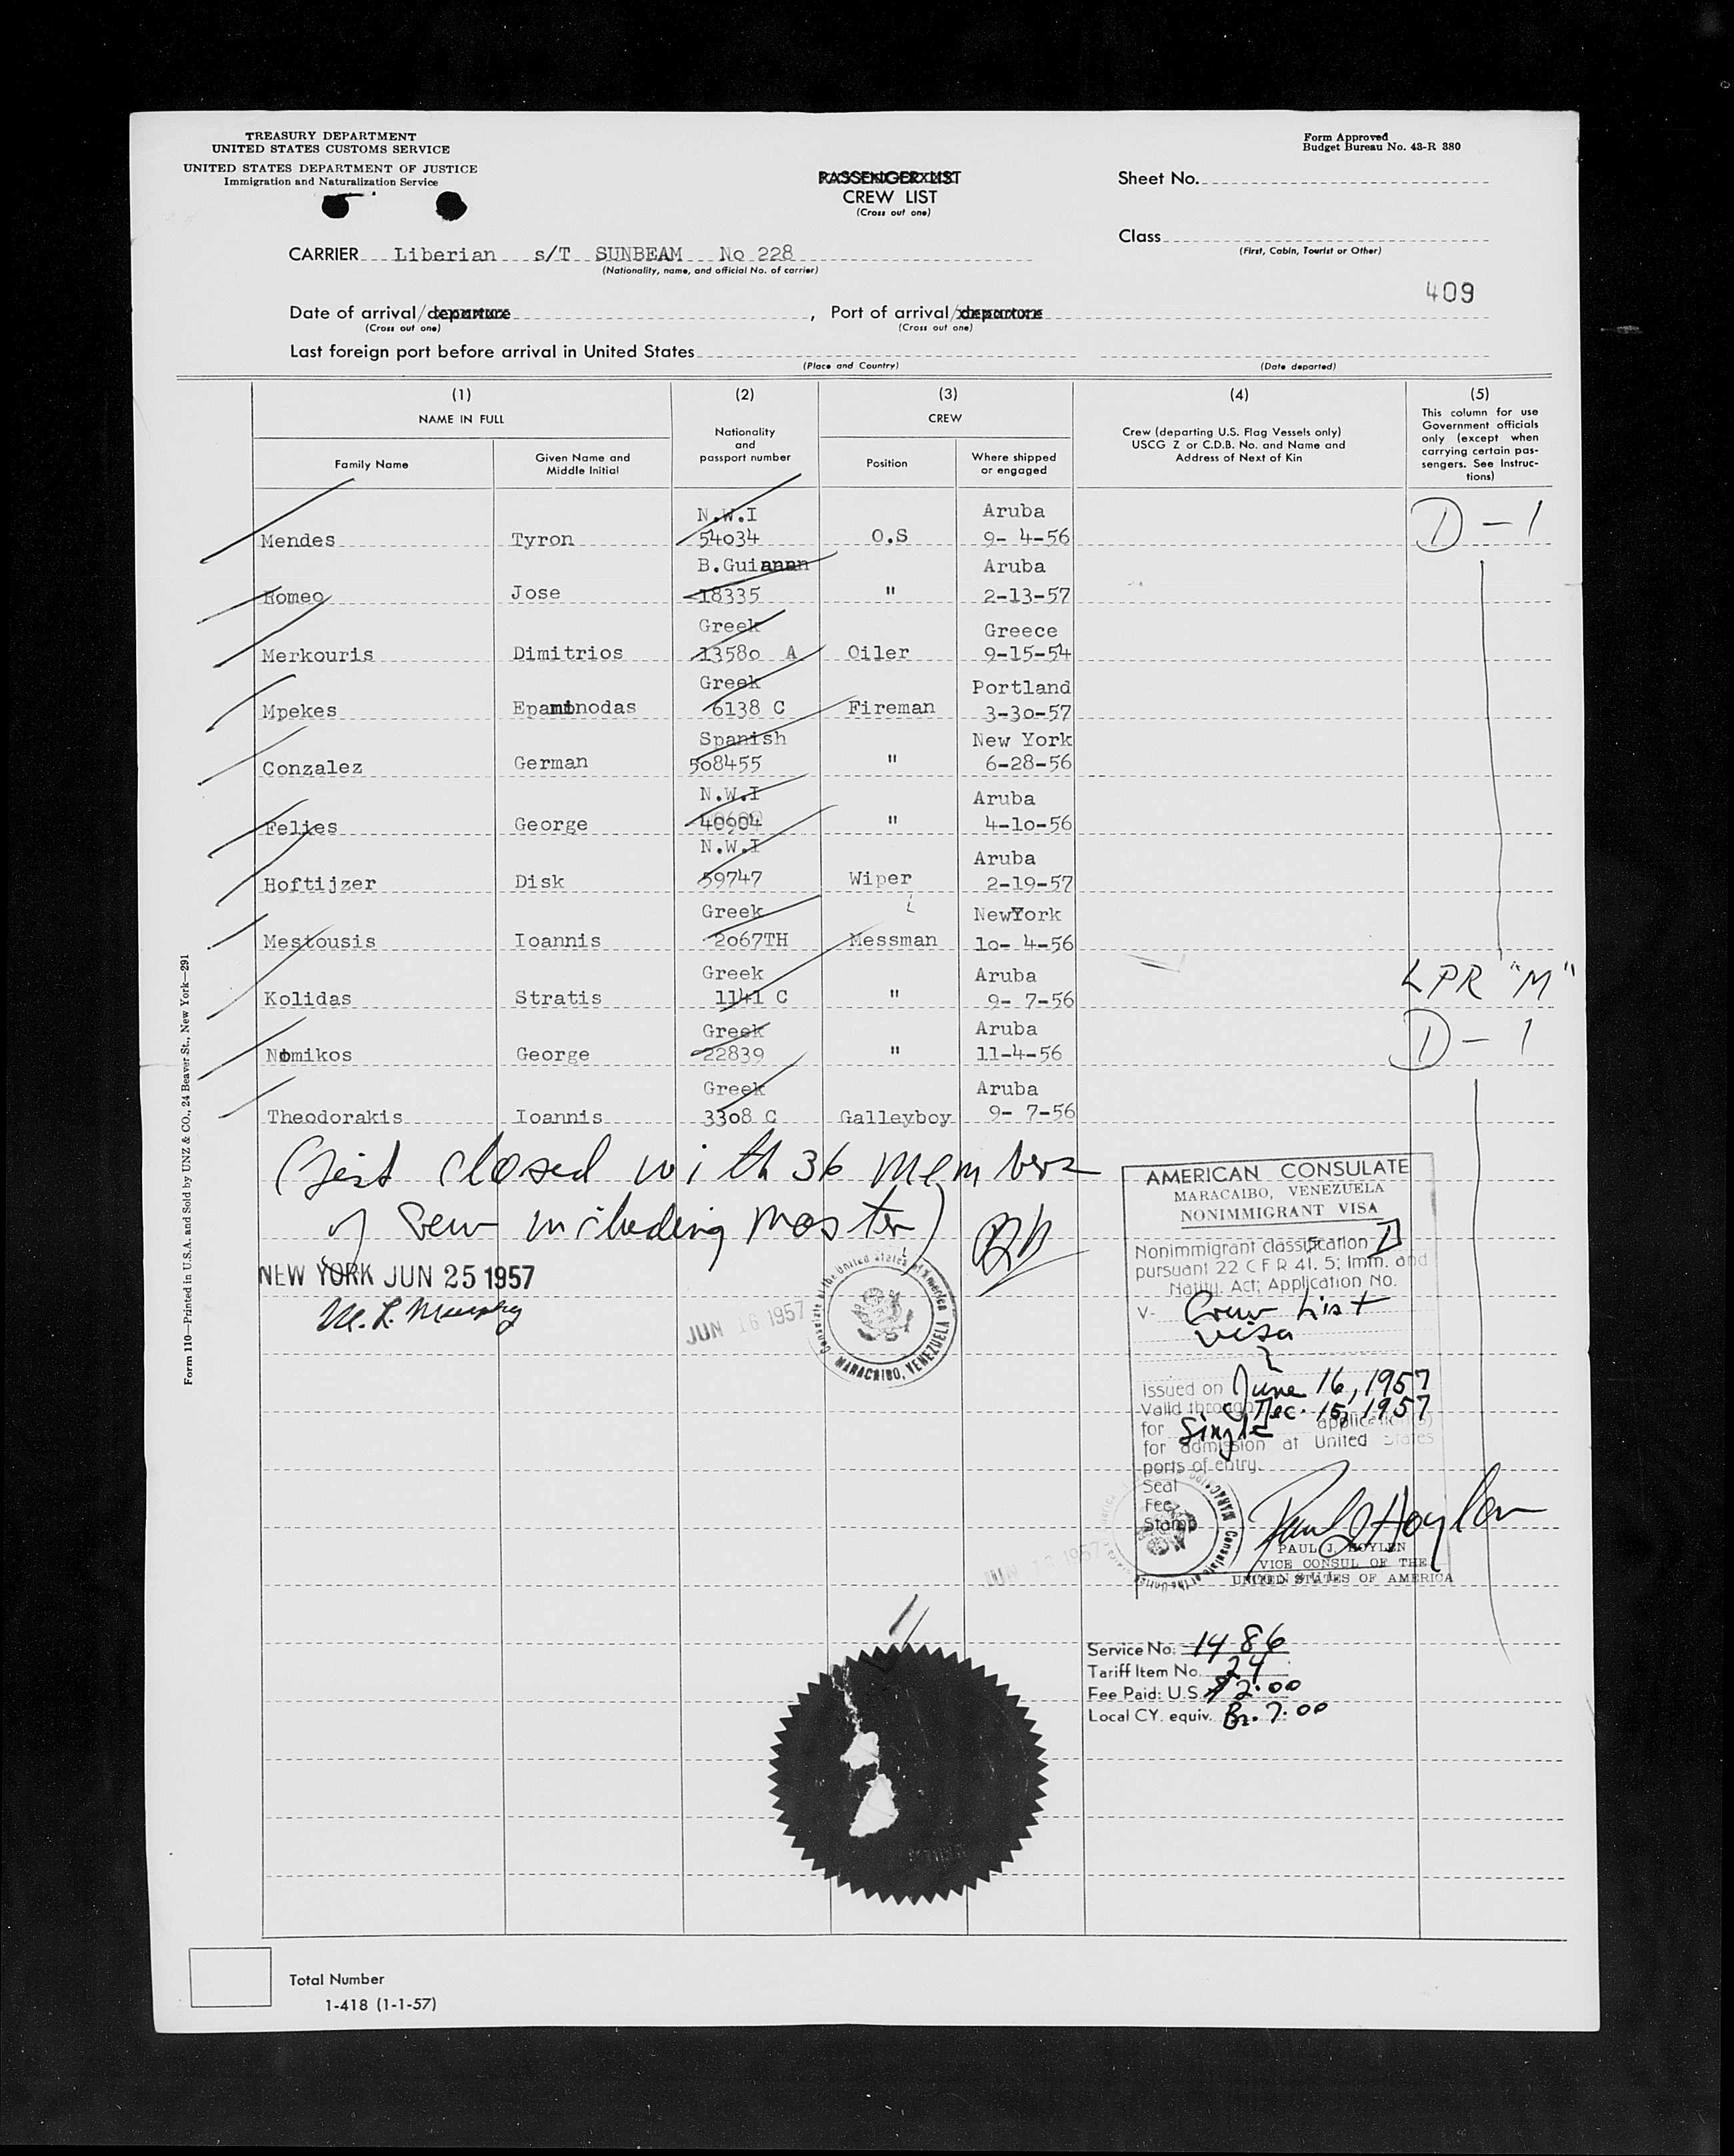 TREASURY DEPARTMENT
UNITED STATES CUSTOMS SERVICE
UNITED STATES DEPARTMENT OF JUSTICE
Immigration and Naturalization Service
Form Approved
Budget Bureau No. 43-R 380
PASSENGER LIST
CREW LIST
(Cross out one)
Sheet No.
Class
(First, Cabin, Tourist or Other)
CARRIER Liberian s/T SUNBEAM No 228
(Nationality, name, and official No. of carrier)
409
Date of arrival/departure , Port of arrival/departure
(Cross out one) (Cross out one)
Last foreign port before arrival in United States
(Place and Country) (Date departed)
(1) (2) (3) (4) (5)
NAME IN FULL
Family Name
Given Name and Middle Initial
Nationality and passport number
CREW
Position
Where shipped or engaged
Crew (departing U.S. Flag Vessels only)
USCG Z or C.D.B. No. and Name and
Address of Next of Kin
This column for use
Government officials
only (except when
carrying certain pas-
sengers. See Instruc-
tions)
N.W.I Aruba
Mendes Tyron 54034 O.S 9- 4-56 D-1
B.Guianan Aruba
Romeo Jose 18335 " 2-13-57
Greek Greece
Merkouris Dimitrios 13580 A Oiler 9-15-54
Greek Portland
Mpekes Epaminodas 6138 C Fireman 3-30-57
Spanish New York
Conzalez German 508455 " 6-28-56
N.W.I Aruba
Felies George 40904 " 4-10-56
N.W.I Aruba
Hoftijzer Disk 59747 Wiper 2-19-57
Greek NewYork
Mestousis Ioannis 2067TH Messman 10- 4-56
Greek Aruba
Kolidas Stratis 1141 C " 9- 7-56 LPR "M"
Greek Aruba
Nomikos George 22839 " 11-4-56 D-1
Greek Aruba
Theodorakis Ioannis 3308 C Galleyboy 9- 7-56
(List closed with 36 members
of crew including master)
NEW YORK JUN 25 1957
M. L. Murphy
JUN 16 1957
Consulate of the United States of America
MARACAIBO, VENEZUELA
AMERICAN CONSULATE
MARACAIBO, VENEZUELA
NONIMMIGRANT VISA
Nonimmigrant classification D
pursuant 22 C F R 41. 5; Imm. and
Natity. Act; Application No.
V- Crew List
Visa
Issued on June 16, 1957
Valid through Dec. 15, 1957
for Single application(s)
for admission at United States
ports of entry.
Seal
Fee
Stamp
Paul J Hoylen
PAUL J. HOYLEN
VICE CONSUL OF THE
UNITED STATES OF AMERICA
Service No. 1486
Tariff Item No. 24
Fee Paid: U.S. $ 2.00
Local CY. equiv. Bs. 7.00
Total Number
1-418 (1-1-57)
Form 110—Printed in U.S.A. and Sold by UNZ & CO., 24 Beaver St., New York—291